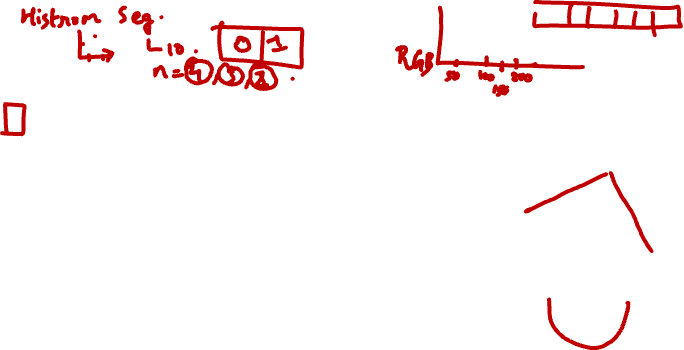 Histnom Seg.
L10. 0 1
n = 4, 3, 2.
RGB
50 100 150 200